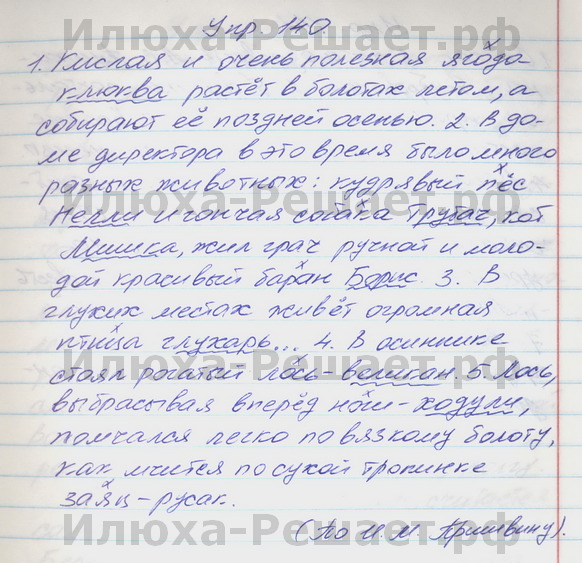 Илюха-Решает.рф
Упр. 140.
1. Кислая и очень полезная ягода
клюква растёт в болотах летом, а
собирают её поздней осенью. 2. В до-
ме директора в это время было много
разных животных: кудрявый пёс
Нелли и гончая собака Трубач, кот
Мишка, жил грач ручной и моло-
дой красивый баран Борис. 3. В
глухих местах живёт огромная
птица глухарь... 4. В осиннике
стоял рогатый лось-великан. 5. Лось,
выбрасывая вперёд ноги-ходули,
помчался легко по вязкому болоту,
как мчится по сухой тропинке
заяц-русак.
Илюха-Решает.рф
(По И. М. Пришвину).